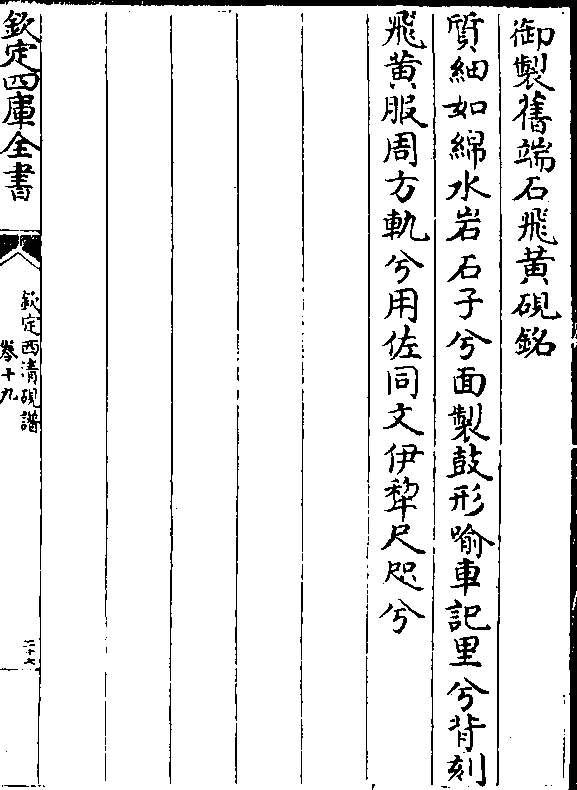 御製舊端石飛黃硯銘
質細如綿水岩石子兮面製鼓形喻車記里兮背刻
飛黃服周方軌兮用佐同文伊犂尺咫兮
欽定四庫全書
欽定西清硯譜
卷十九
二十六